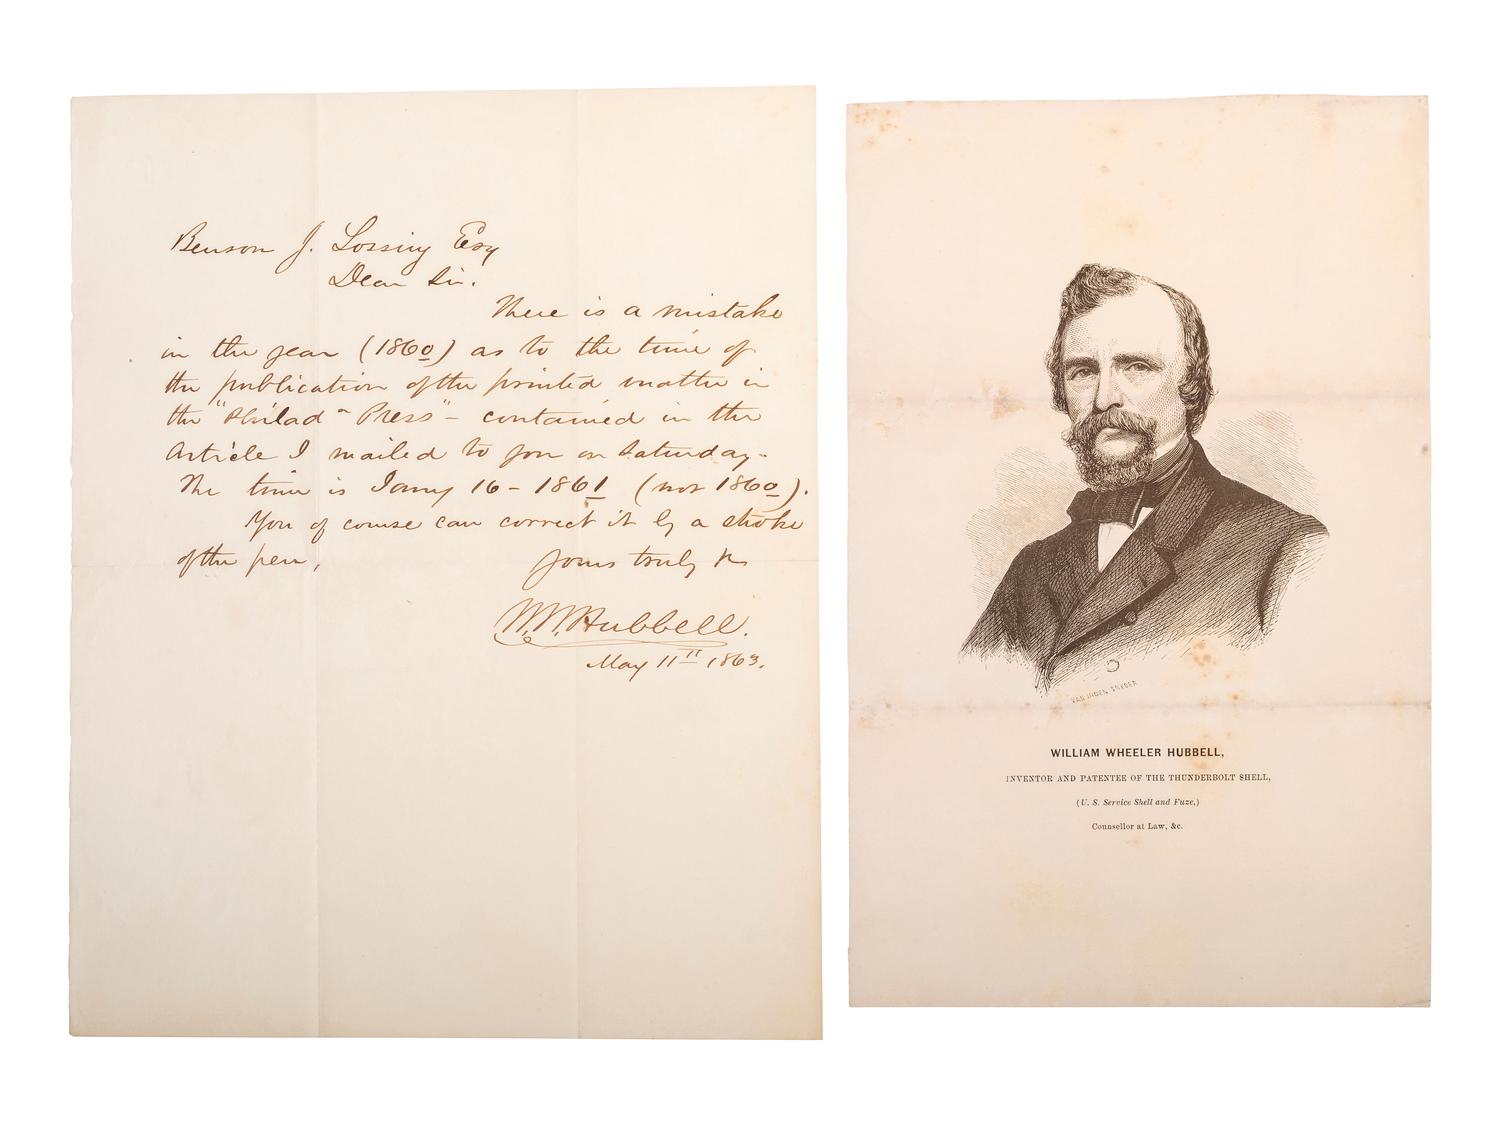 Benson J. Lossing Esq
Dear Sir.
There is a mistake
in the year (1860) as to the time of
the publication of the printed matter in
the "Philada Press" - contained in the
Article I mailed to you on Saturday.
The time is Jany 16 - 1861 (not 1860).
You of course can correct it by a stroke
of the pen,
Yours truly &c
W. W. Hubbell.
May 11th 1863.
VAN INGEN SNYDER
WILLIAM WHEELER HUBBELL,
INVENTOR AND PATENTEE OF THE THUNDERBOLT SHELL,
(U. S. Service Shell and Fuze,)
Counsellor at Law, &c.